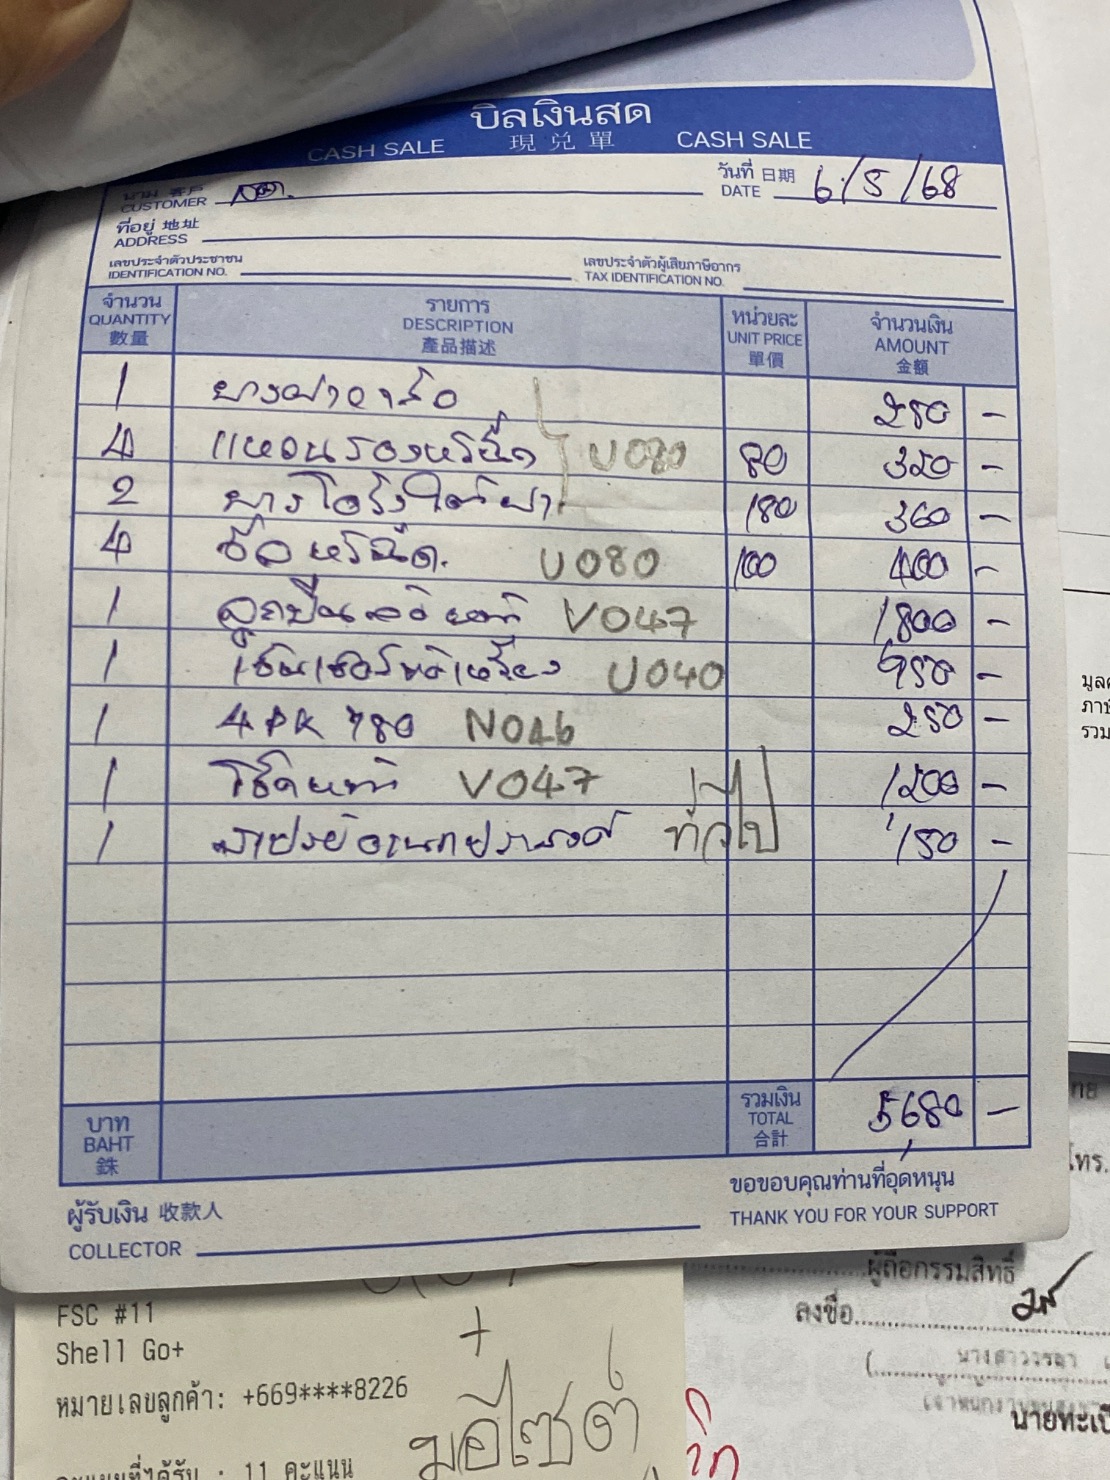 บิลเงินสด
CASH SALE 現兌單 CASH SALE
นาม 客戶
CUSTOMER
วันที่ 日期
DATE 6/5/68
ที่อยู่ 地址
ADDRESS
เลขประจำตัวประชาชน
IDENTIFICATION NO.
เลขประจำตัวผู้เสียภาษีอากร
TAX IDENTIFICATION NO.
จำนวน รายการ หน่วยละ จำนวนเงิน
QUANTITY DESCRIPTION UNIT PRICE AMOUNT
數量 產品描述 單價 金額
1 ยางฝา 250 -
4 แหวนรองหัวฉีด U080 80 320 -
2 ยางโอริง 180 360 -
4 หัวฉีด. U080 100 400 -
1 ลูกปืน V047 1800 -
1 เซ็นเซอร์ U040 950 -
1 4PK 780 N046 250 -
1 โช๊คหน้า V047 1,200 -
1 สเปรย์อเนกประสงค์ ทั่วไป 150 -
บาท
BAHT
銖
รวมเงิน
TOTAL 5,680 -
合計
ผู้รับเงิน 收款人
COLLECTOR
ขอขอบคุณท่านที่อุดหนุน
THANK YOU FOR YOUR SUPPORT
มูล
ภาษ
รวม
โทร.
FSC #11
Shell Go+
หมายเลขลูกค้า: +669****8226
+
มอไซต์
คะแนนที่ได้รับ : 11 คะแนน
ผู้ถือกรรมสิทธิ์
ลงชื่อ
นายทะเบี